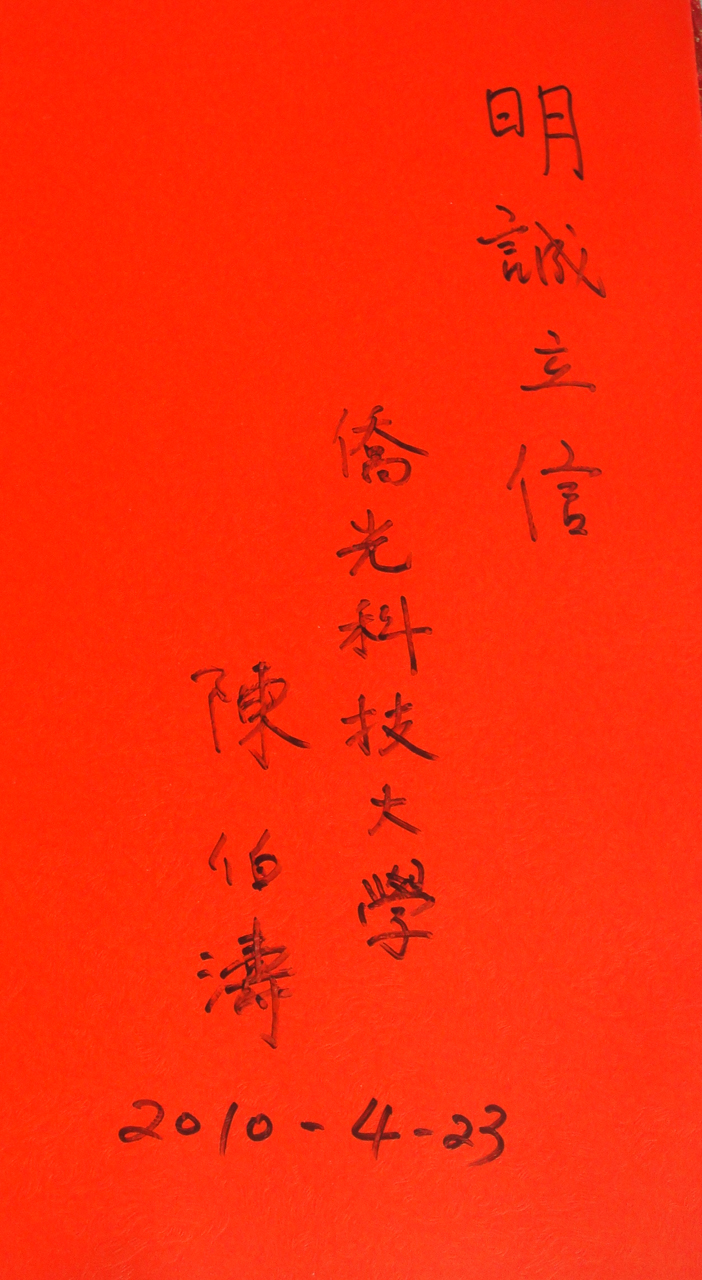 明誠立信
僑光科技大學
陳伯濤
2010-4-23